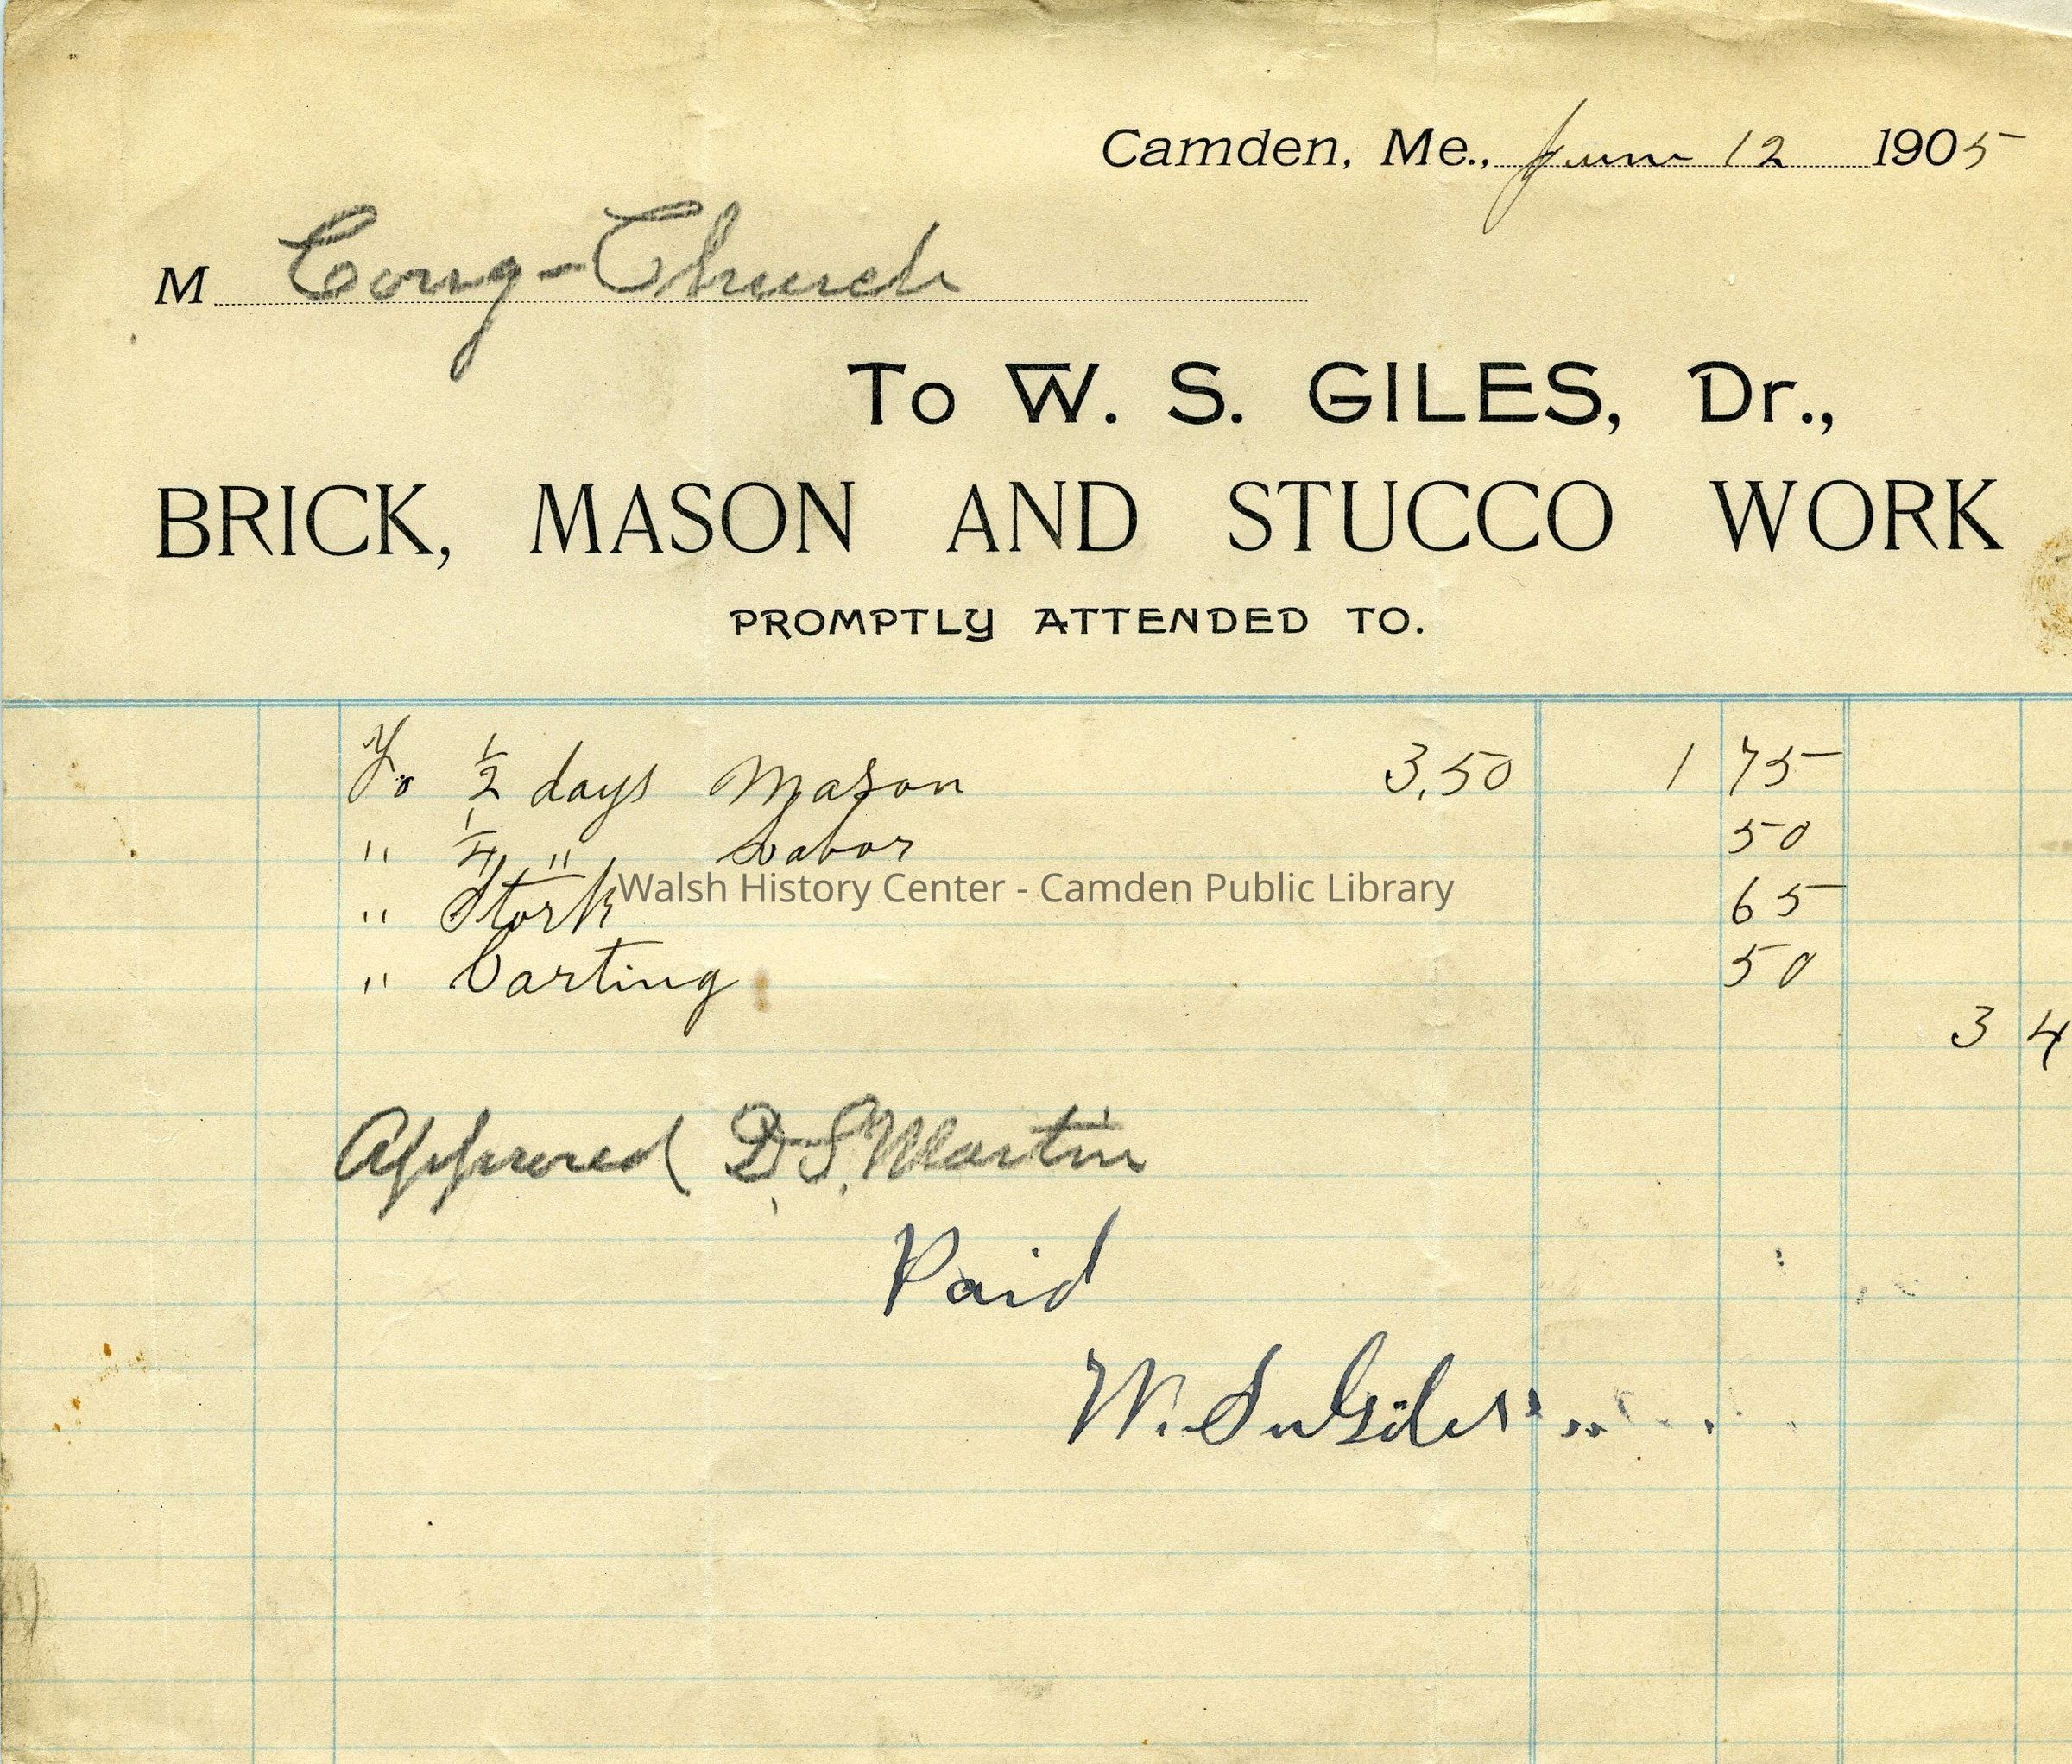 Camden, Me., June 12 1905
M Cong-Church
To W. S. GILES, Dr.,
BRICK, MASON AND STUCCO WORK
PROMPTLY ATTENDED TO.
To 1/2 days Mason 3,50 1 75
" 1/4 " Labor 50
" Stork 65
Walsh History Center - Camden Public Library
" Carting 50
3 4
Approved D.S. Martin
Paid
W. S. Giles